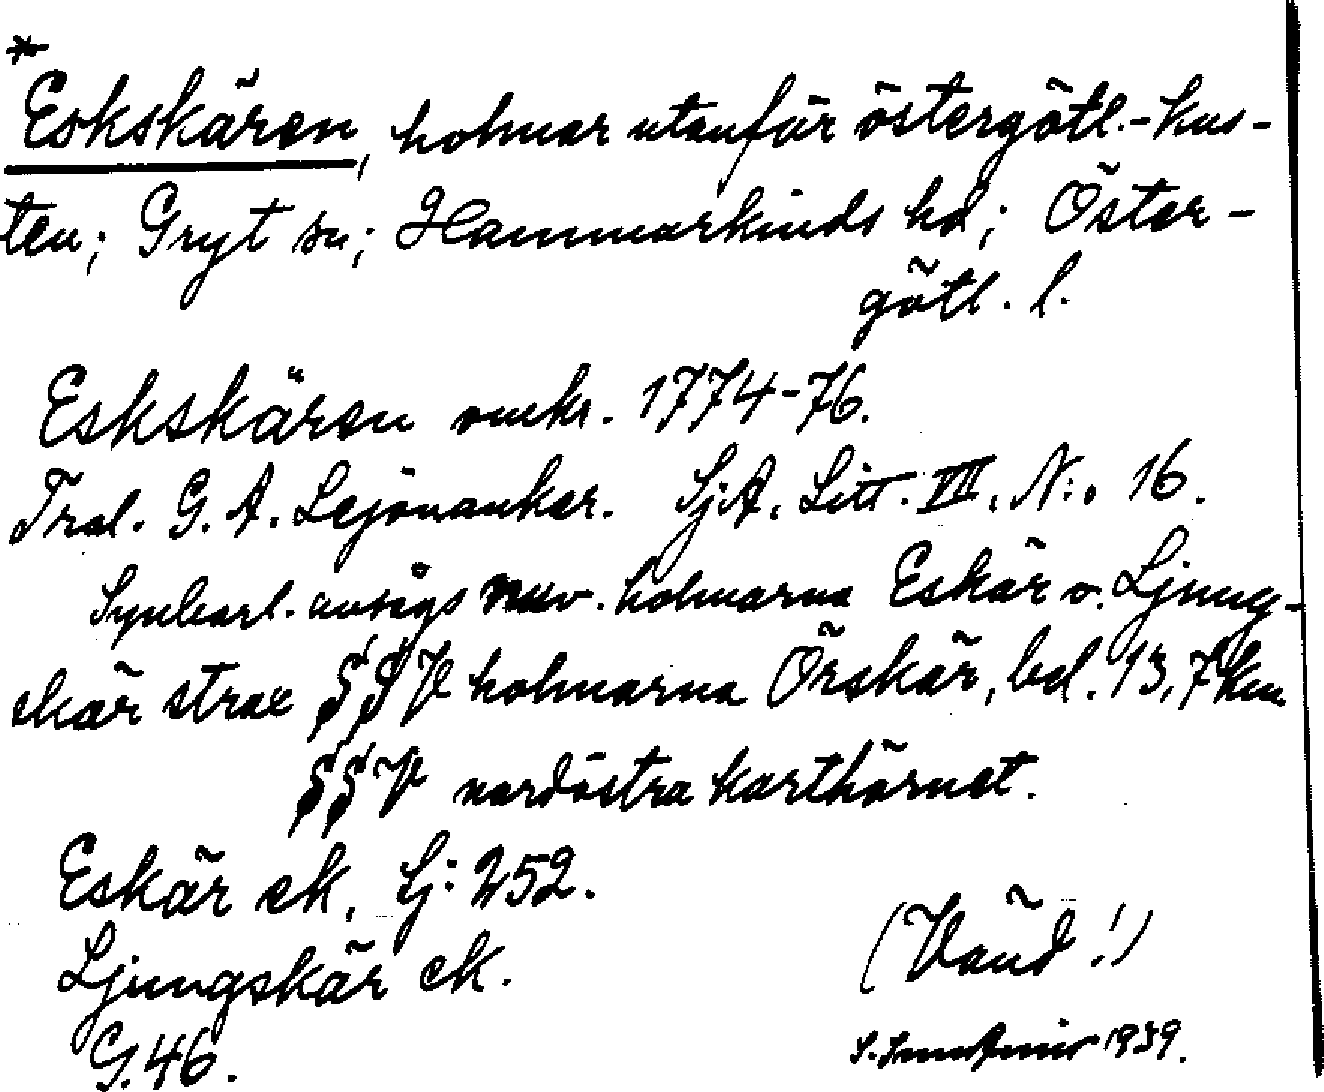 *
Eskskären, holmar utanför östergötl.-kus-
ten; Gryt sn; Hammarkinds hd; Öster-
götl. l.
Eskskären omkr. 1774-76.
Tral. G. A. Lejonanker. SjA. Litt. VII. N:o 16.
Synbarl. avses nuv. holmarna Eskär o. Ljung-
skär strax SSV holmarna Örskär, bel. 13,7 km
SSV nordöstra karthörnet.
Eskär ek. Sj: 252.
Ljungskär ek.
G. 46.
(Vänd!)
1939.